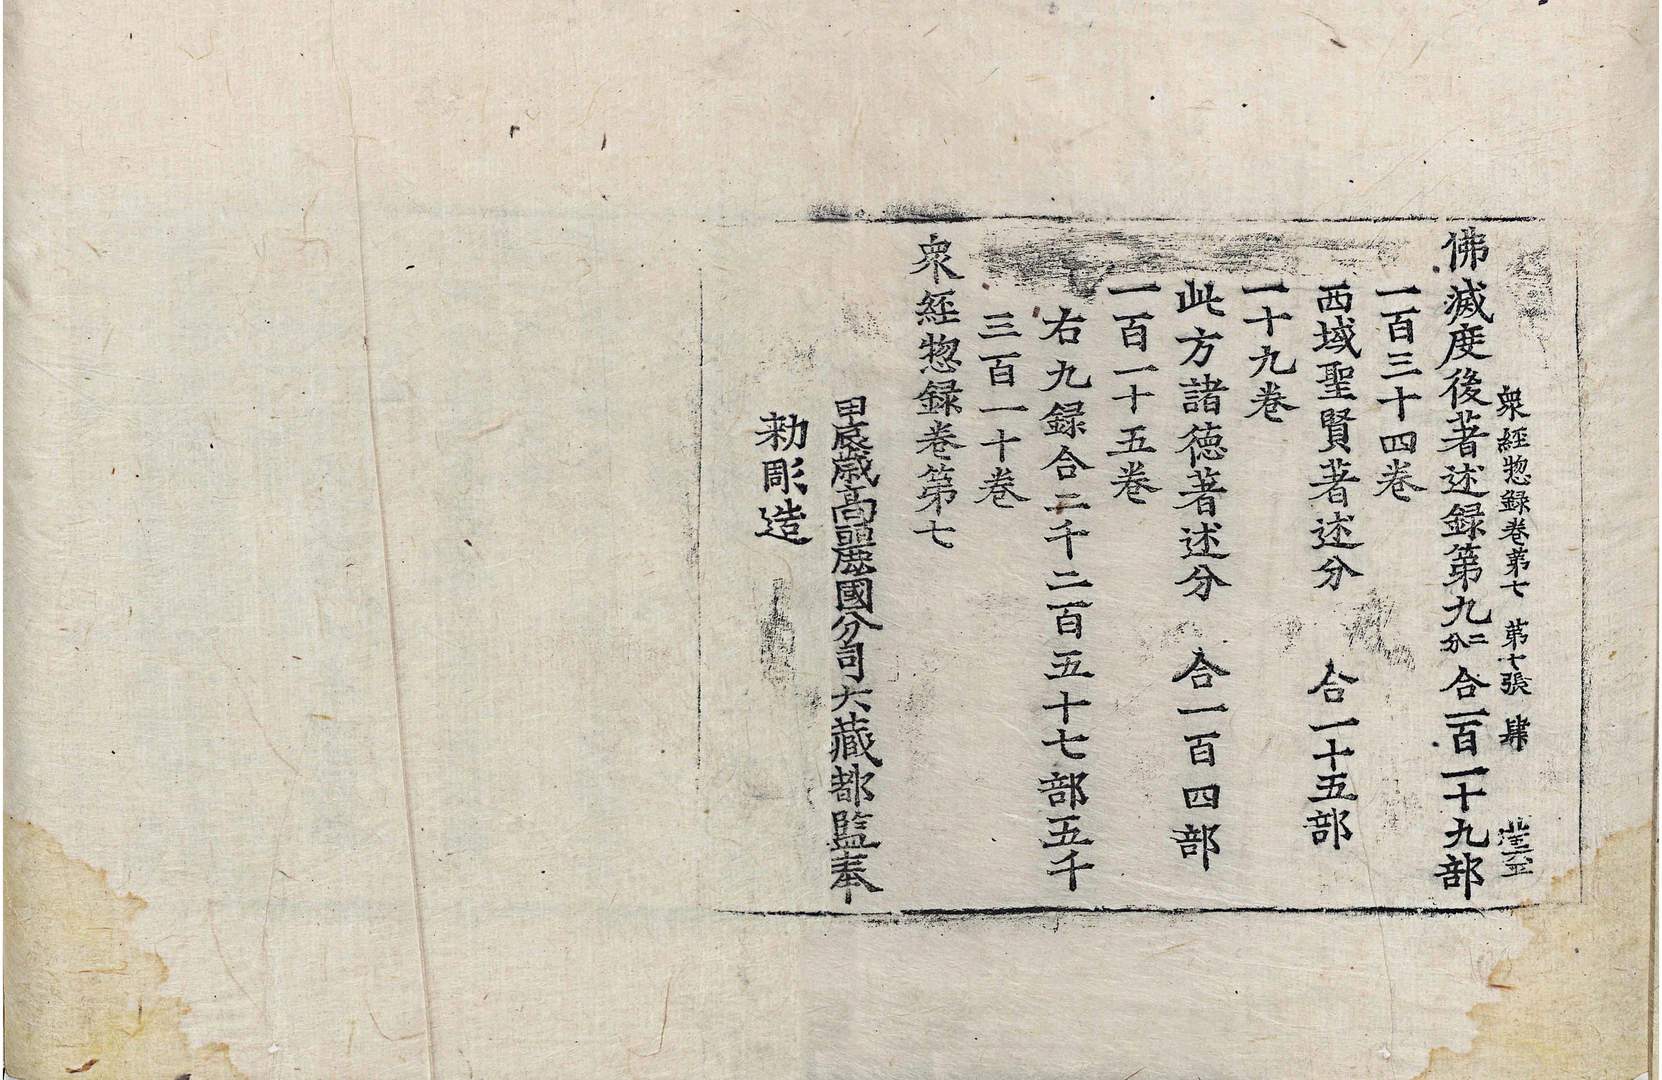 衆經惣録卷第七 第十張 肆
佛滅度後著述録第九二分合一百一十九部
一百三十四卷
西域聖賢著述分 合一十五部
一十九卷
此方諸德著述分 合一百四部
一百一十五卷
右九録合二千二百五十七部五千
三百一十卷
衆經惣録卷第七
甲辰歳高麗國分司大藏都監奉
勑彫造